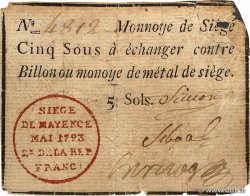 No. 4812 Monnoye de Siége
Cinq Sous à échanger contre
Billon ou monoye de métal de siége.
5 Sols. Simon
SIEGE
DE MAYENCE
MAI 1793
2e. DE LA REP.
FRANC!